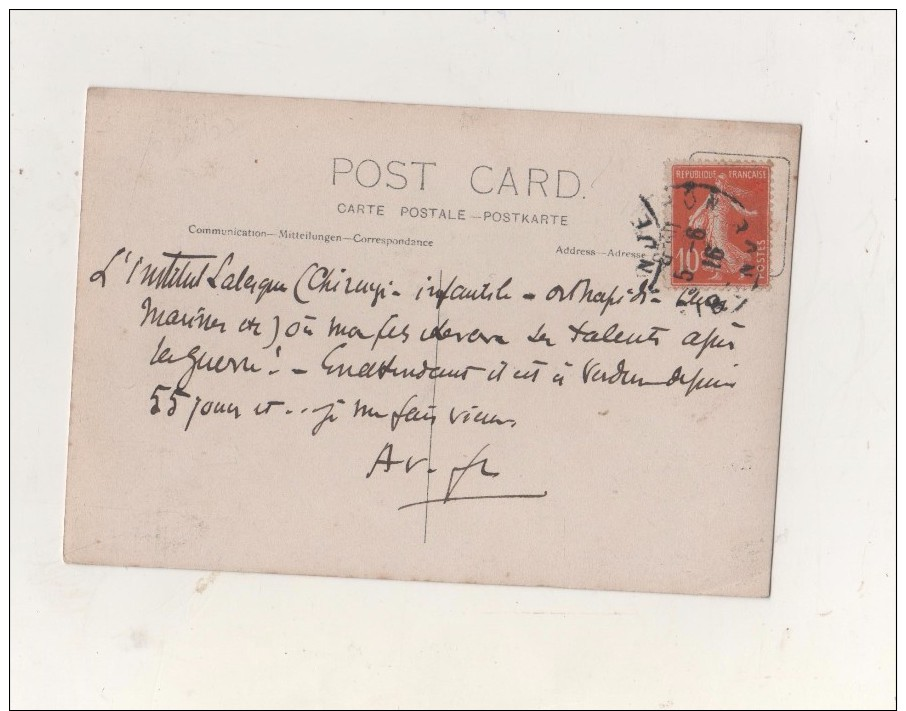 POST CARD.
CARTE POSTALE—POSTKARTE
Communication—Mitteilungen—Correspondance
Address—Adresse
REPUBLIQUE FRANÇAISE
10
POSTES
5-6
16
L'Institut (Chirurgie infantile - orthopédie - Cure
Marines etc) où mon fils ses talents après
la guerre! - En attendant il est à Verdun depuis
55 jours et... je me fais vieux